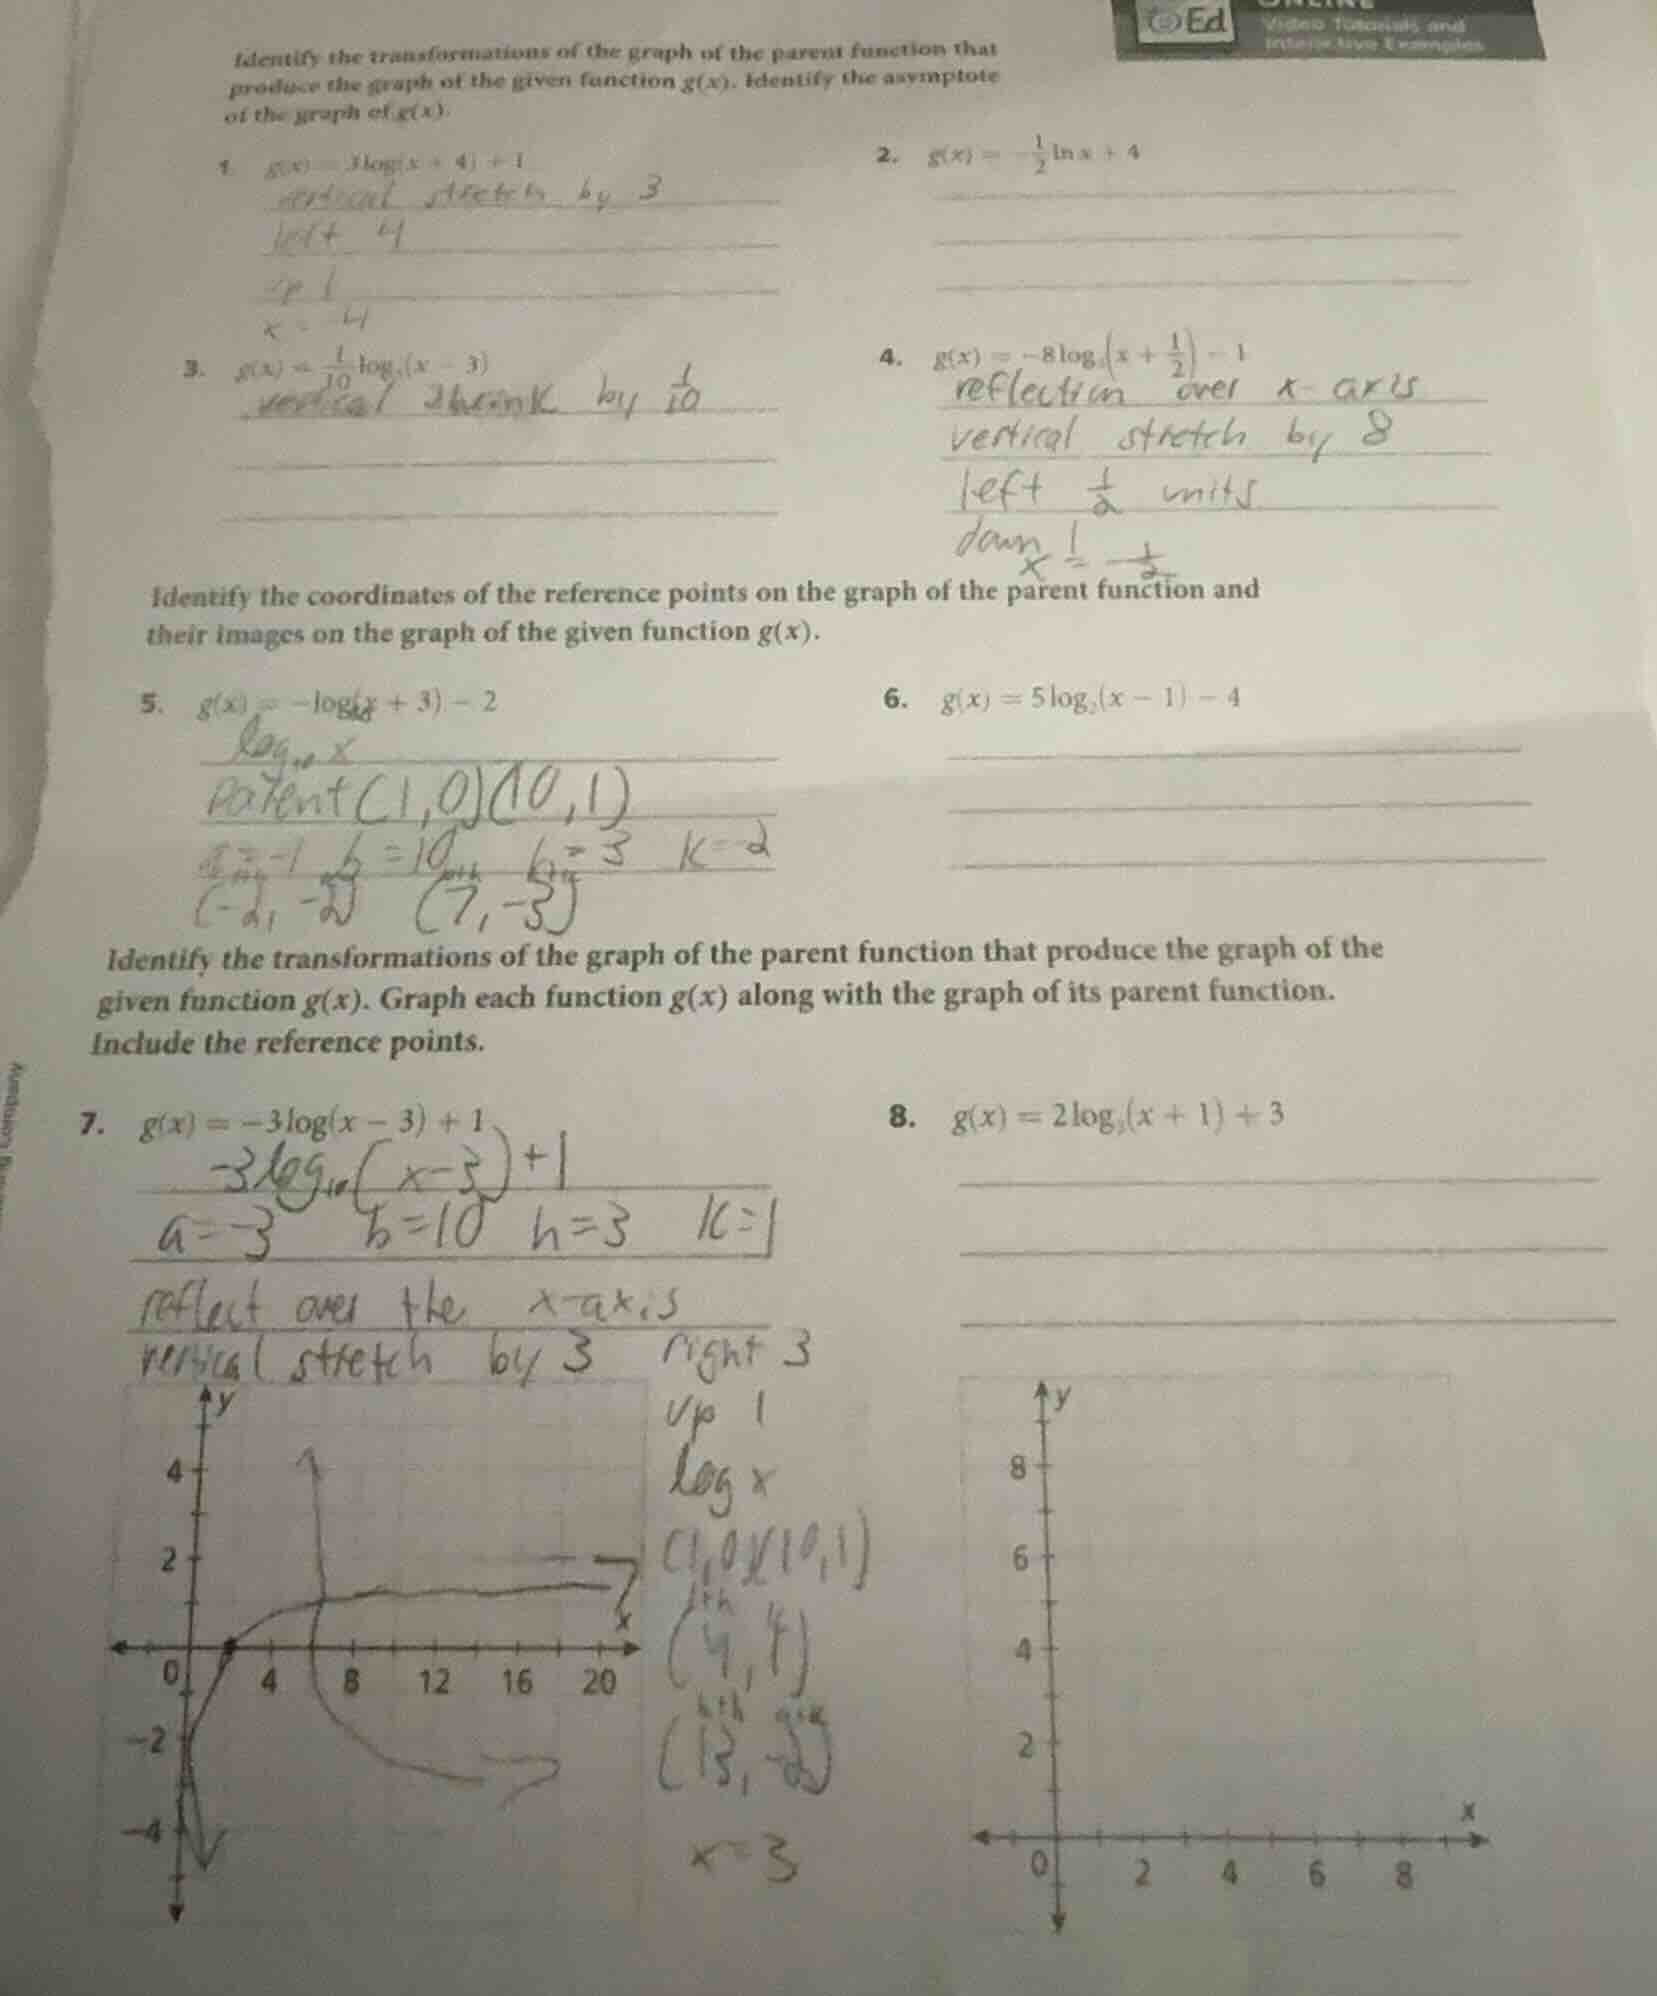 Ed
ONLINE
Video Tutorials and
Interactive Examples
Identify the transformations of the graph of the parent function that
produce the graph of the given function g(x). Identify the asymptote
of the graph of g(x).
1. g(x) = 3log(x + 4) + 1
vertical stretch by 3
left 4
up 1
x = -4
2. g(x) = -1/2 ln x + 4
3. g(x) = 1/10 log (x - 3)
vertical shrink by 1/10
4. g(x) = -8log (x + 1/2) - 1
reflection over x-axis
vertical stretch by 8
left 1/2 units
down 1
x = -1/2
Identify the coordinates of the reference points on the graph of the parent function and
their images on the graph of the given function g(x).
5. g(x) = -log(x + 3) - 2
log₁₀ x
Parent (1,0)(10,1)
a=-1 b=10 h=3 k=-2
(-2, -2) (7, -3)
6. g(x) = 5log₂(x - 1) - 4
Identify the transformations of the graph of the parent function that produce the graph of the
given function g(x). Graph each function g(x) along with the graph of its parent function.
Include the reference points.
7. g(x) = -3log(x - 3) + 1
-3log₁₀(x-3)+1
a=-3 b=10 h=3 k=1
reflect over the x-axis
vertical stretch by 3 right 3
up 1
log x
(1,0)(10,1)
1+h
(4, )
b+h a+k
(13, -2)
x=3
y
4
2
x
0 4 8 12 16 20
-2
-4
8. g(x) = 2log (x + 1) + 3
y
8
6
4
2
x
0 2 4 6 8
Company